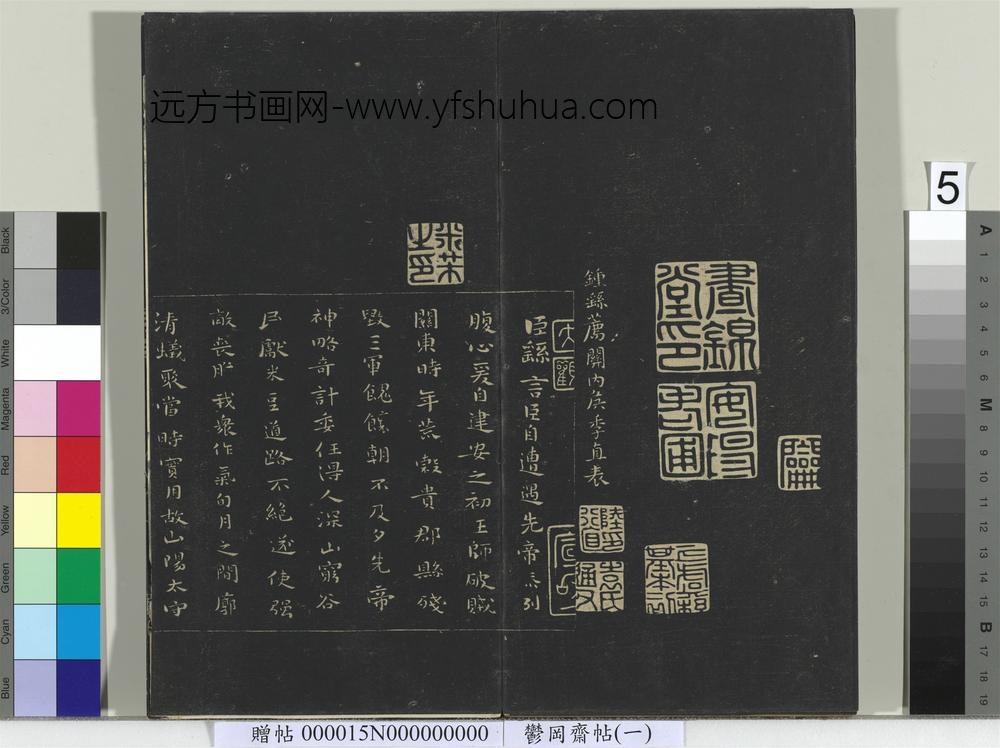 远方书画网-www.yfshuhua.com
5
鍾繇薦關内侯季直表
臣繇言臣自遭遇先帝忝列
腹心爰自建安之初王師破賊
關東時年荒穀貴郡縣殘
毀三軍餽饟朝不及夕先帝
神略奇計委任得人深山窮谷
民獻米豆道路不絶遂使强
敵喪膽我衆作氣旬月之間廓
清蟻聚當時實用故山陽太守
晝錦堂印
米芾之印
Black
3/Color
White
Magenta
Red
Yellow
Green
Cyan
Blue
A
1
2
3
4
5
M
8
9
10
11
12
13
14
15
B
17
18
19
贈帖 000015N000000000
鬱岡齋帖(一)